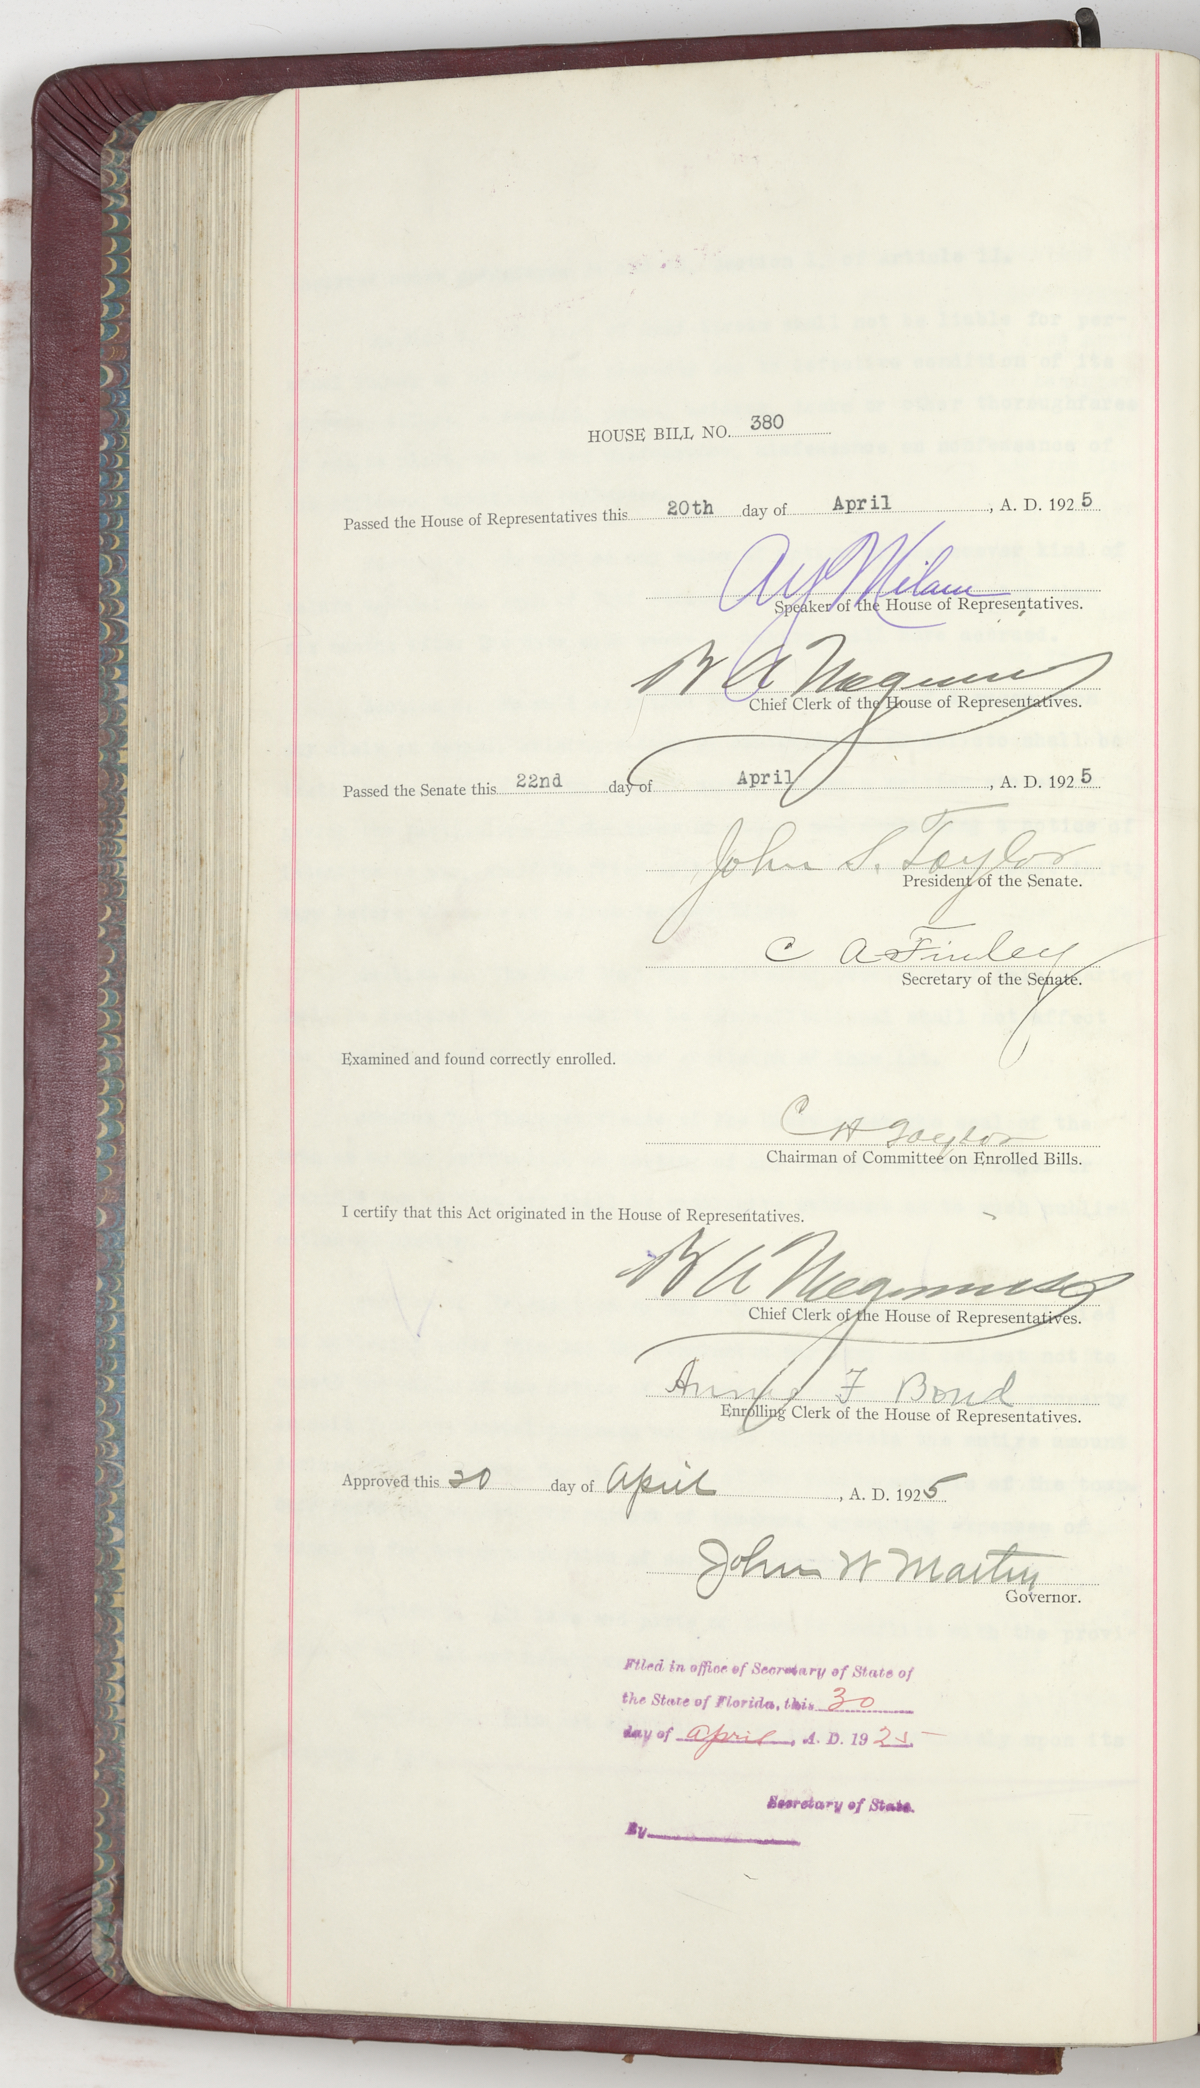 HOUSE BILL NO. 380
Passed the House of Representatives this 20th day of April, A. D. 1925
A Y Milam
Speaker of the House of Representatives.
B A
Chief Clerk of the House of Representatives.
Passed the Senate this 22nd day of April, A. D. 1925
John S. Taylor
President of the Senate.
C A Finley
Secretary of the Senate.
Examined and found correctly enrolled.
C H Taylor
Chairman of Committee on Enrolled Bills.
I certify that this Act originated in the House of Representatives.
B A
Chief Clerk of the House of Representatives.
Annie F Bond
Enrolling Clerk of the House of Representatives.
Approved this 30 day of April, A. D. 1925
John W Martin
Governor.
Filed in office of Secretary of State of
the State of Florida, this 30
day of April, A. D. 1925
Secretary of State.
By